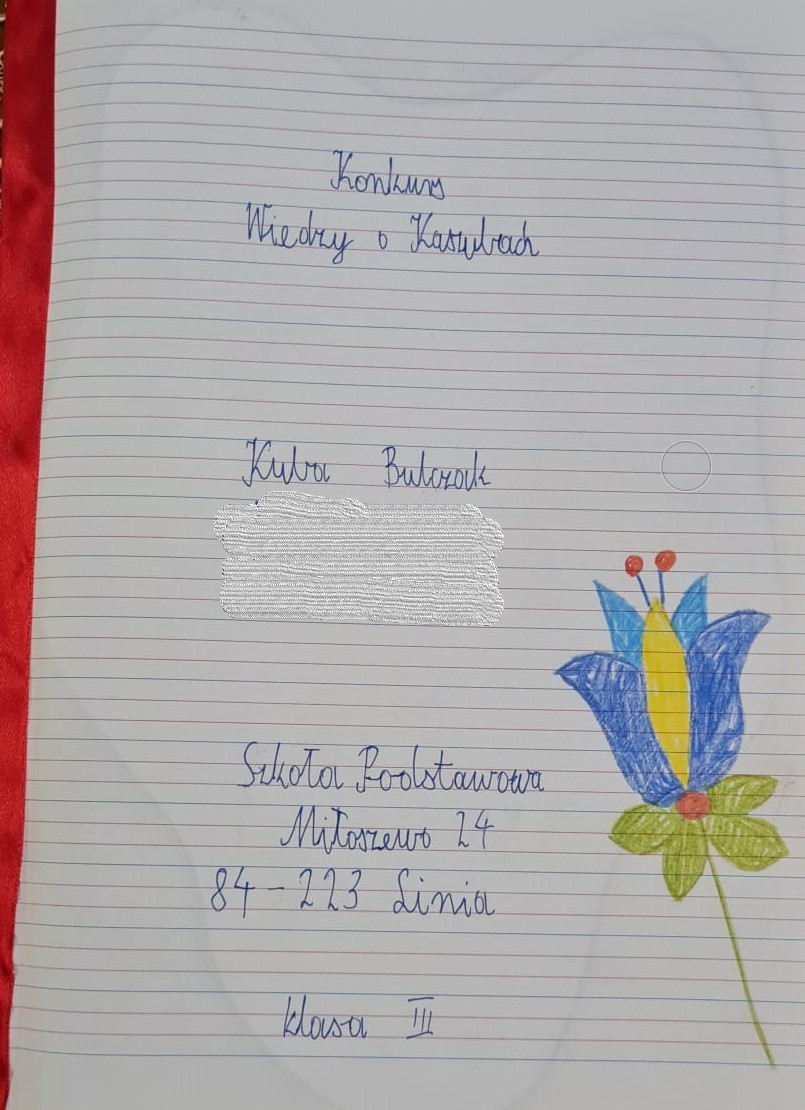 Konkurs
Wiedzy o Kaszubach
Kuba Bulczak
Szkoła Podstawowa
Miłoszewo 24
84-223 Linia
klasa III